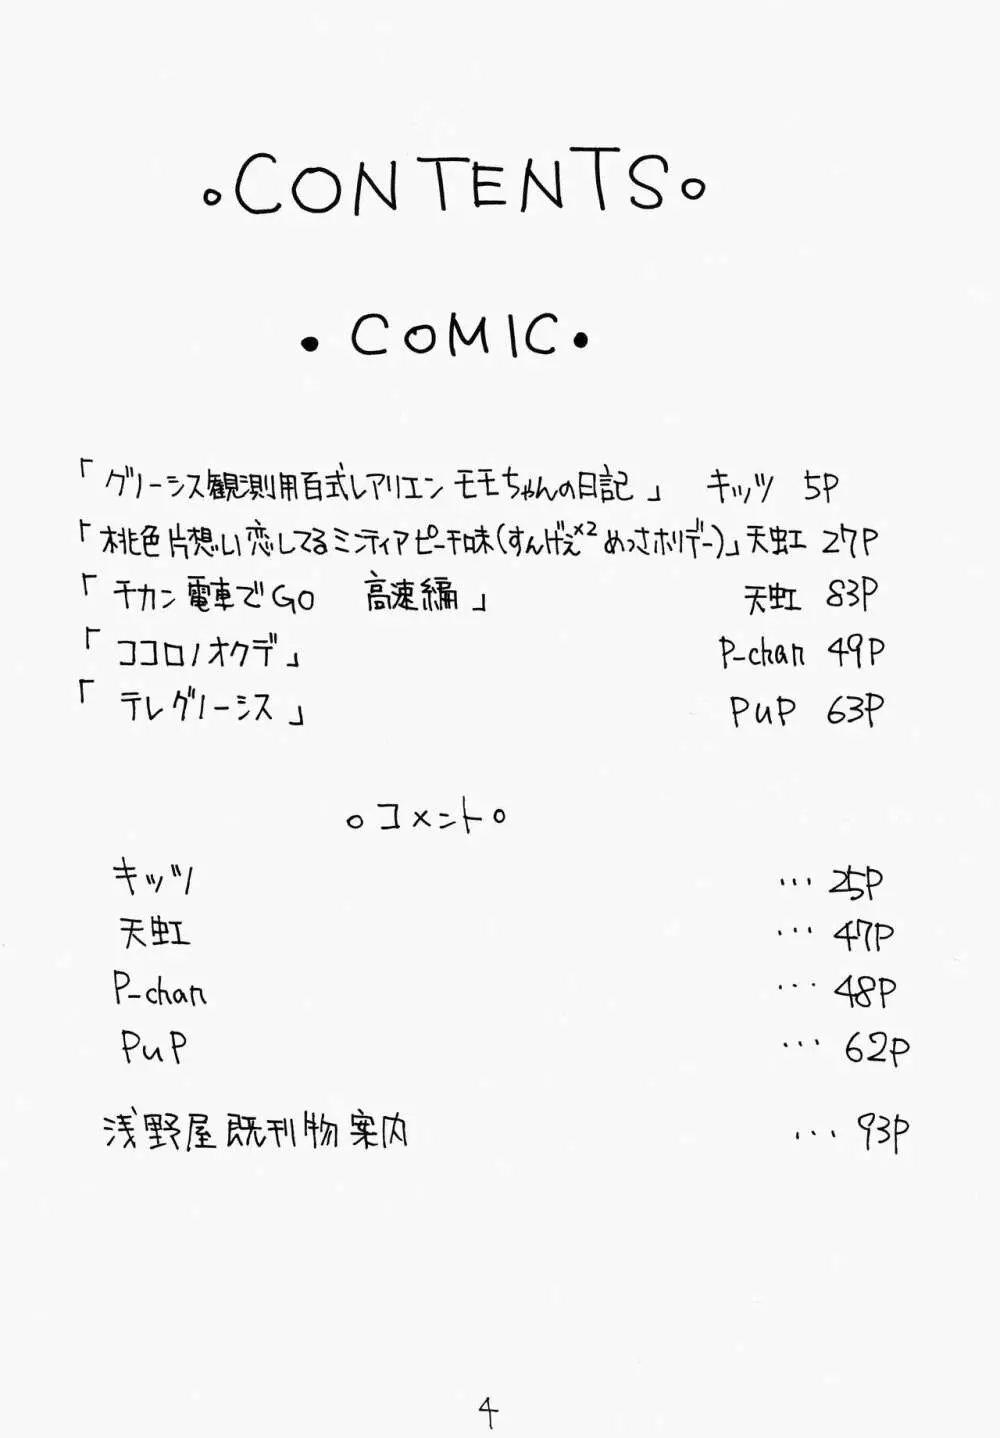 。CONTENTS。
・COMIC・
「グノーシス観測用百式レアリエン モモちゃんの日記」 キッツ 5P
「桃色片想い恋してるミンティアピーチ味(すんげぇ×2 めっさホリデー)」天虹 27P
「チカン電車でGO 高速編」 天虹 83P
「ココロノオクデ」 P-chan 49P
「テレグノーシス」 PuP 63P
。コメント。
キッツ … 25P
天虹 … 47P
P-chan … 48P
PuP … 62P
浅野屋既刊物案内 … 93P
4